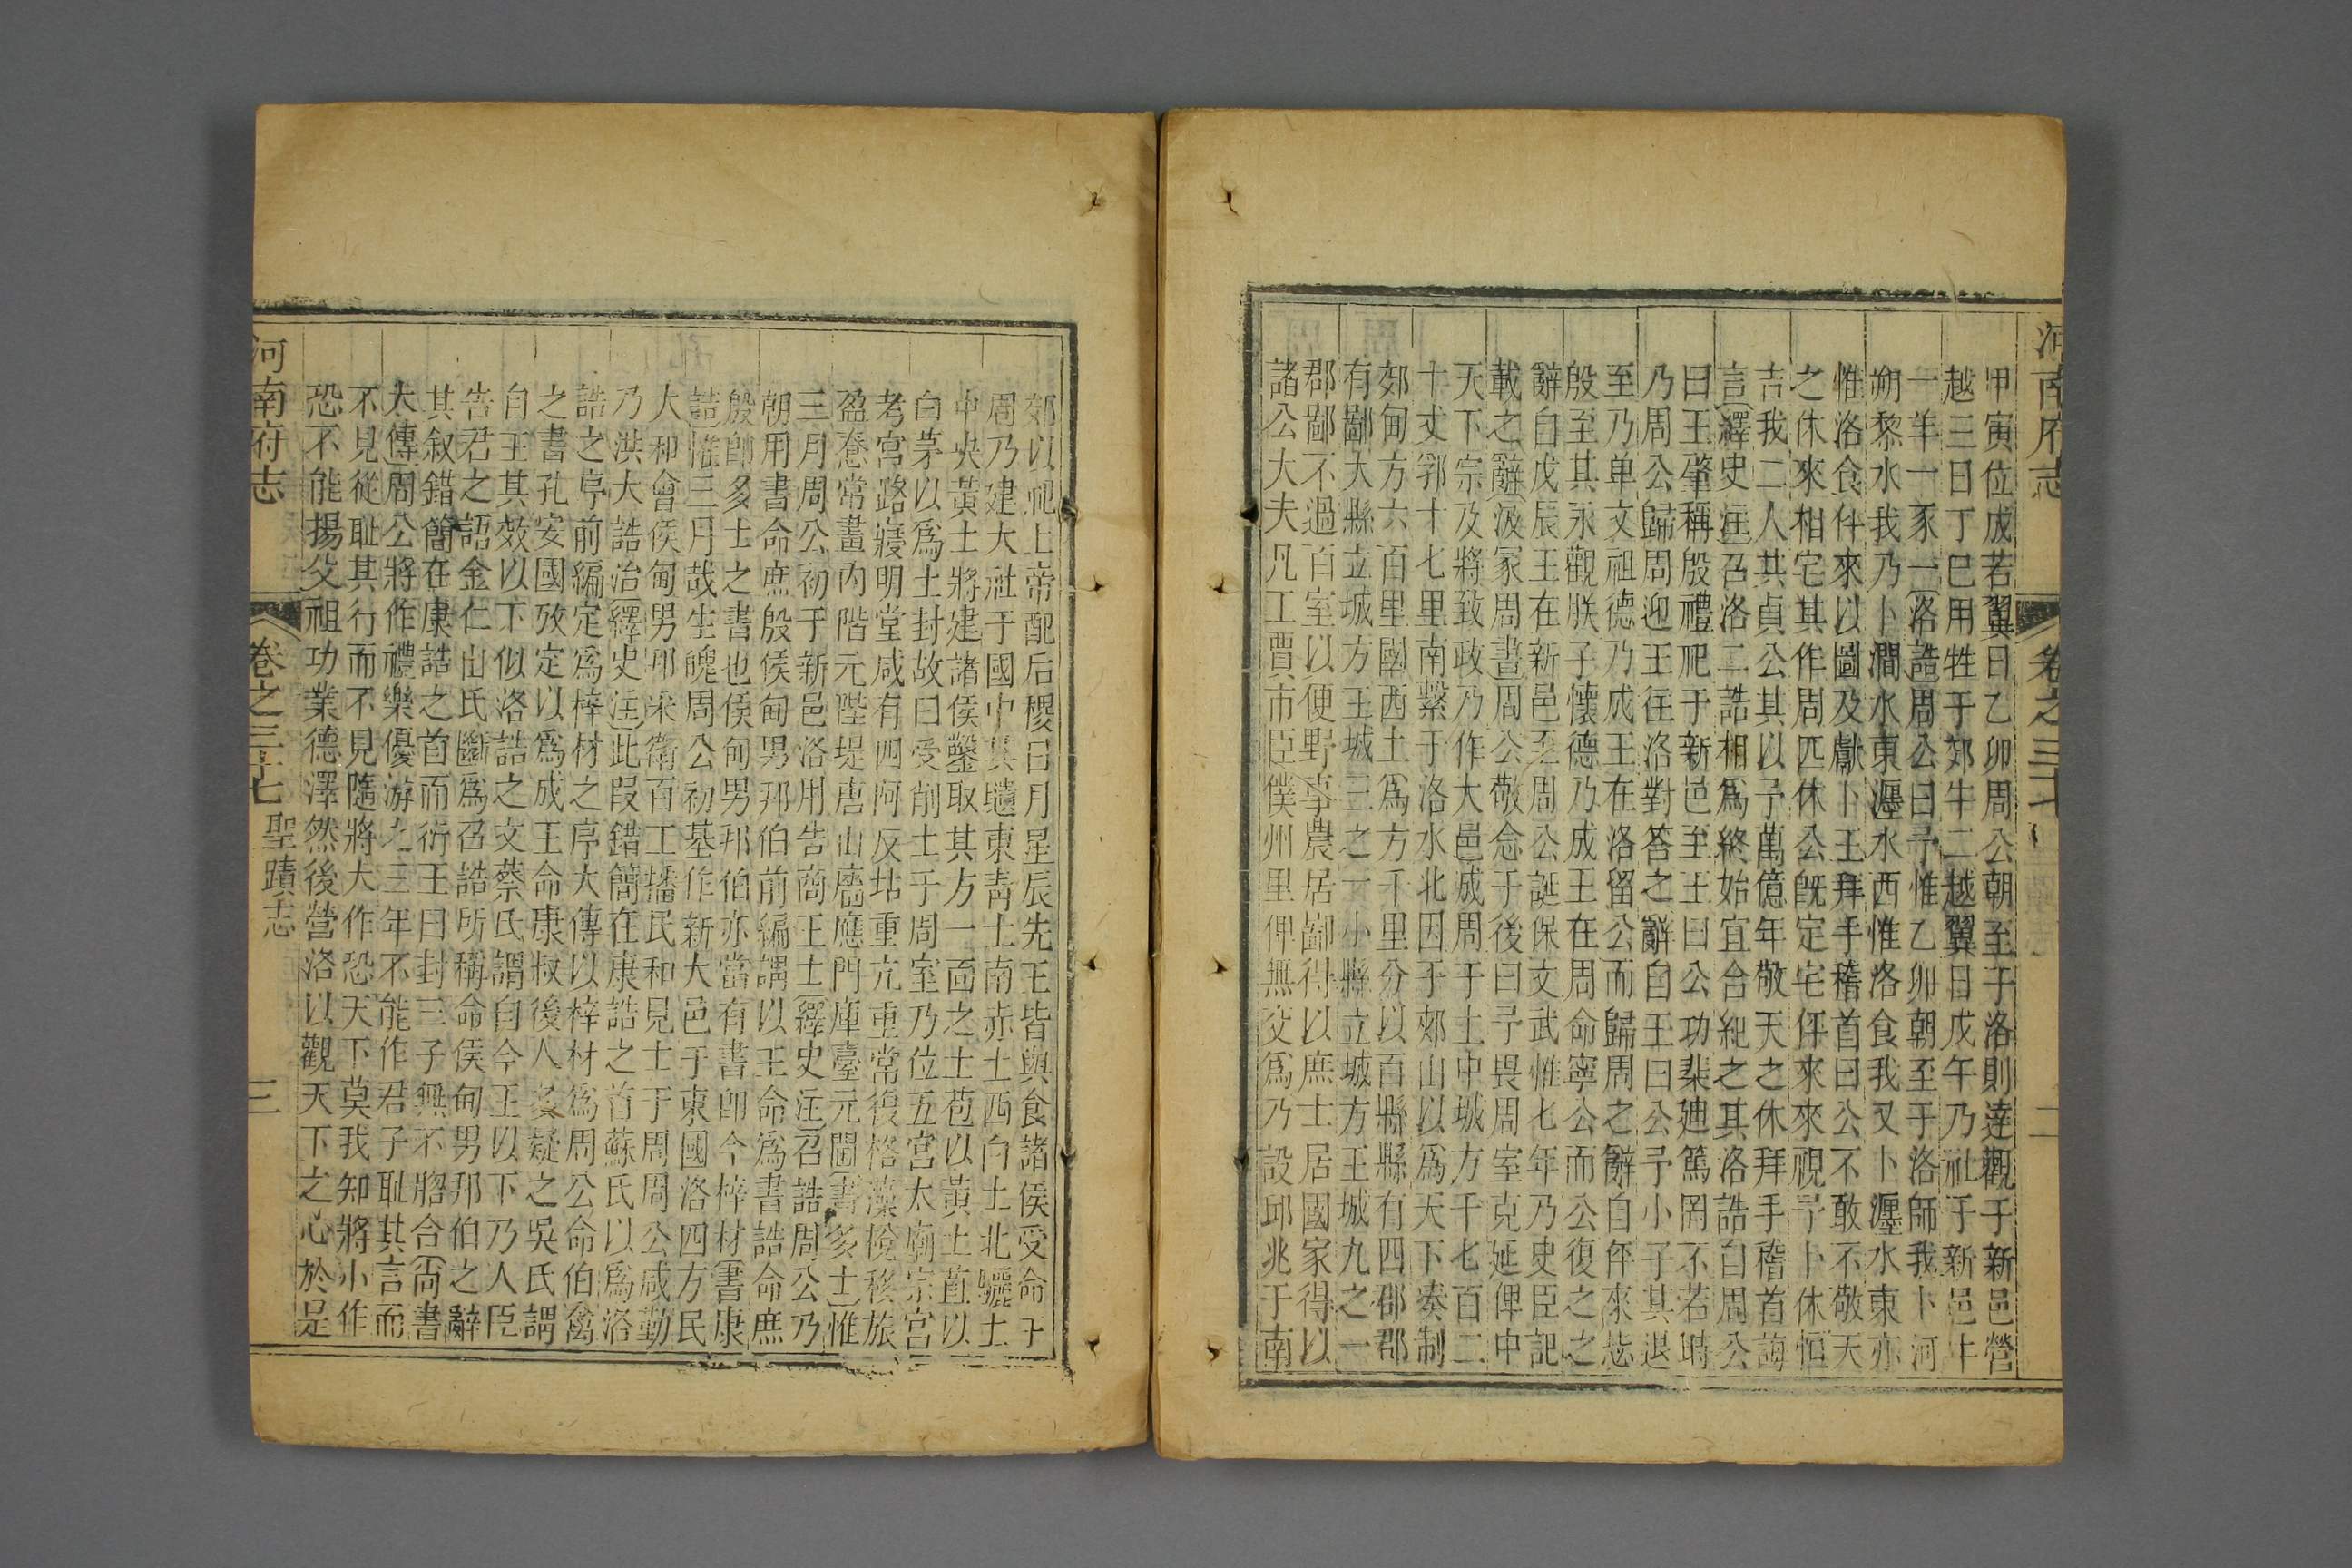 河南府志
卷之三十七
二
甲寅位成若翼日乙卯周公朝至于洛則達觀于新邑營
越三日丁巳用牲于郊牛二越翼日戊午乃社于新邑牛
一羊一豕一〔洛誥周公曰予惟乙卯朝至于洛師我卜河
朔黎水我乃卜澗水東瀍水西惟洛食我又卜瀍水東亦
惟洛食伻來以圖及獻卜王拜手稽首曰公不敢不敬天
之休來相宅其作周匹休公既定宅伻來來視予卜休恒
吉我二人共貞公其以予萬億年敬天之休拜手稽首誨
言〔繹史注召洛二誥相爲終始宜合紀之其洛誥自周公
曰王肇稱殷禮祀于新邑至王曰公功棐迪篤罔不若時
乃周公歸周迎王往洛對答之辭自王曰公予小子其退
至乃单文祖德乃成王在洛留公而歸周之辭自伻來毖
殷至其永觀朕子懷德乃成王在周命寧公而公復之之
辭自戊辰王在新邑至周公誕保文武惟七年乃史臣記
載之辭〔汲冢周書周公敬念于後曰予畏周室克延俾中
天下宗及將致政乃作大邑成周于土中城方千七百二
十丈郛十七里南繫于洛水北因于郊山以爲天下湊制
郊甸方六百里國西土爲方千里分以百縣縣有四郡郡
有鄙大縣立城方王城三之一小縣立城方王城九之一
郡鄙不過百室以便野事農居鄙得以庶士居國家得以
諸公大夫凡工賈市臣僕州里俾無交爲乃設邱兆于南
郊以祀上帝配后稷日月星辰先王皆與食諸侯受命于
周乃建大社于國中其壝東青土南赤土西白土北驪土
中央黃土將建諸侯鑿取其方一面之土苞以黃土苴以
白茅以爲土封故曰受削土于周室乃位五宮太廟宗宮
考宮路寢明堂咸有四阿反坫重亢重常復格藻梲移旅
盈惷常畫內階元陛堤唐山廧應門庫臺元閫〔書多士〕惟
三月周公初于新邑洛用告商王士〔繹史注〕召誥周公乃
朝用書命庶殷侯甸男邦伯前編謂以王命爲書誥命庶
殷卽多士之書也侯甸男邦伯亦當有書卽今梓材〔書康
誥〕惟三月哉生魄周公初基作新大邑于東國洛四方民
大和會侯甸男邦采衛百工播民和見士于周周公咸勤
乃洪大誥治〔繹史注〕此段錯簡在康誥之首蘇氏以爲洛
誥之序前編定爲梓材之序大傳以梓材爲周公命伯禽
之書孔安國攷定以爲成王命康叔後人多疑之吳氏謂
自王其效以下似洛誥之文蔡氏謂自今王以下乃人臣
告君之語金仁山氏斷爲召誥所稱命侯甸男邦伯之辭
其叙錯簡在康誥之首而衍王曰封三子無不脗合〔尚書
大傳〕周公將作禮樂優游之三年不能作君子耻其言而
不見從耻其行而不見隨將大作恐天下莫我知將小作
恐不能揚父祖功業德澤然後營洛以觀天下之心於是
河南府志
卷之三十七
聖蹟志
三